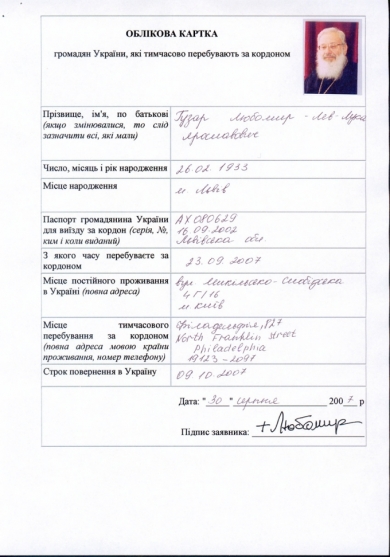 ОБЛІКОВА КАРТКА
громадян України, які тимчасово перебувають за кордоном
Прізвище, ім'я, по батькові
(якщо змінювалися, то слід
зазначити всі, які мали)
Гузар Любомир - Лев - Лука
Ярославович
Число, місяць і рік народження
26.02 1933
Місце народження
м Львів
Паспорт громадянина України
для виїзду за кордон (серія, №,
ким і коли виданий)
АХ 080629
16.09.2002
Львівська обл
З якого часу перебуваєте за
кордоном
23.09 2007
Місце постійного проживання
в Україні (повна адреса)
вул Микільсько-Слобідська
4Г/16
м Київ
Місце тимчасового
перебування за кордоном
(повна адреса мовою країни
проживання, номер телефону)
Філадельфія, 827
North Franklin Street
Philadelphia
19123-2097
Строк повернення в Україну
09.10 2007
Дата: " 30 " серпня 2007 р
Підпис заявника: + Любомир